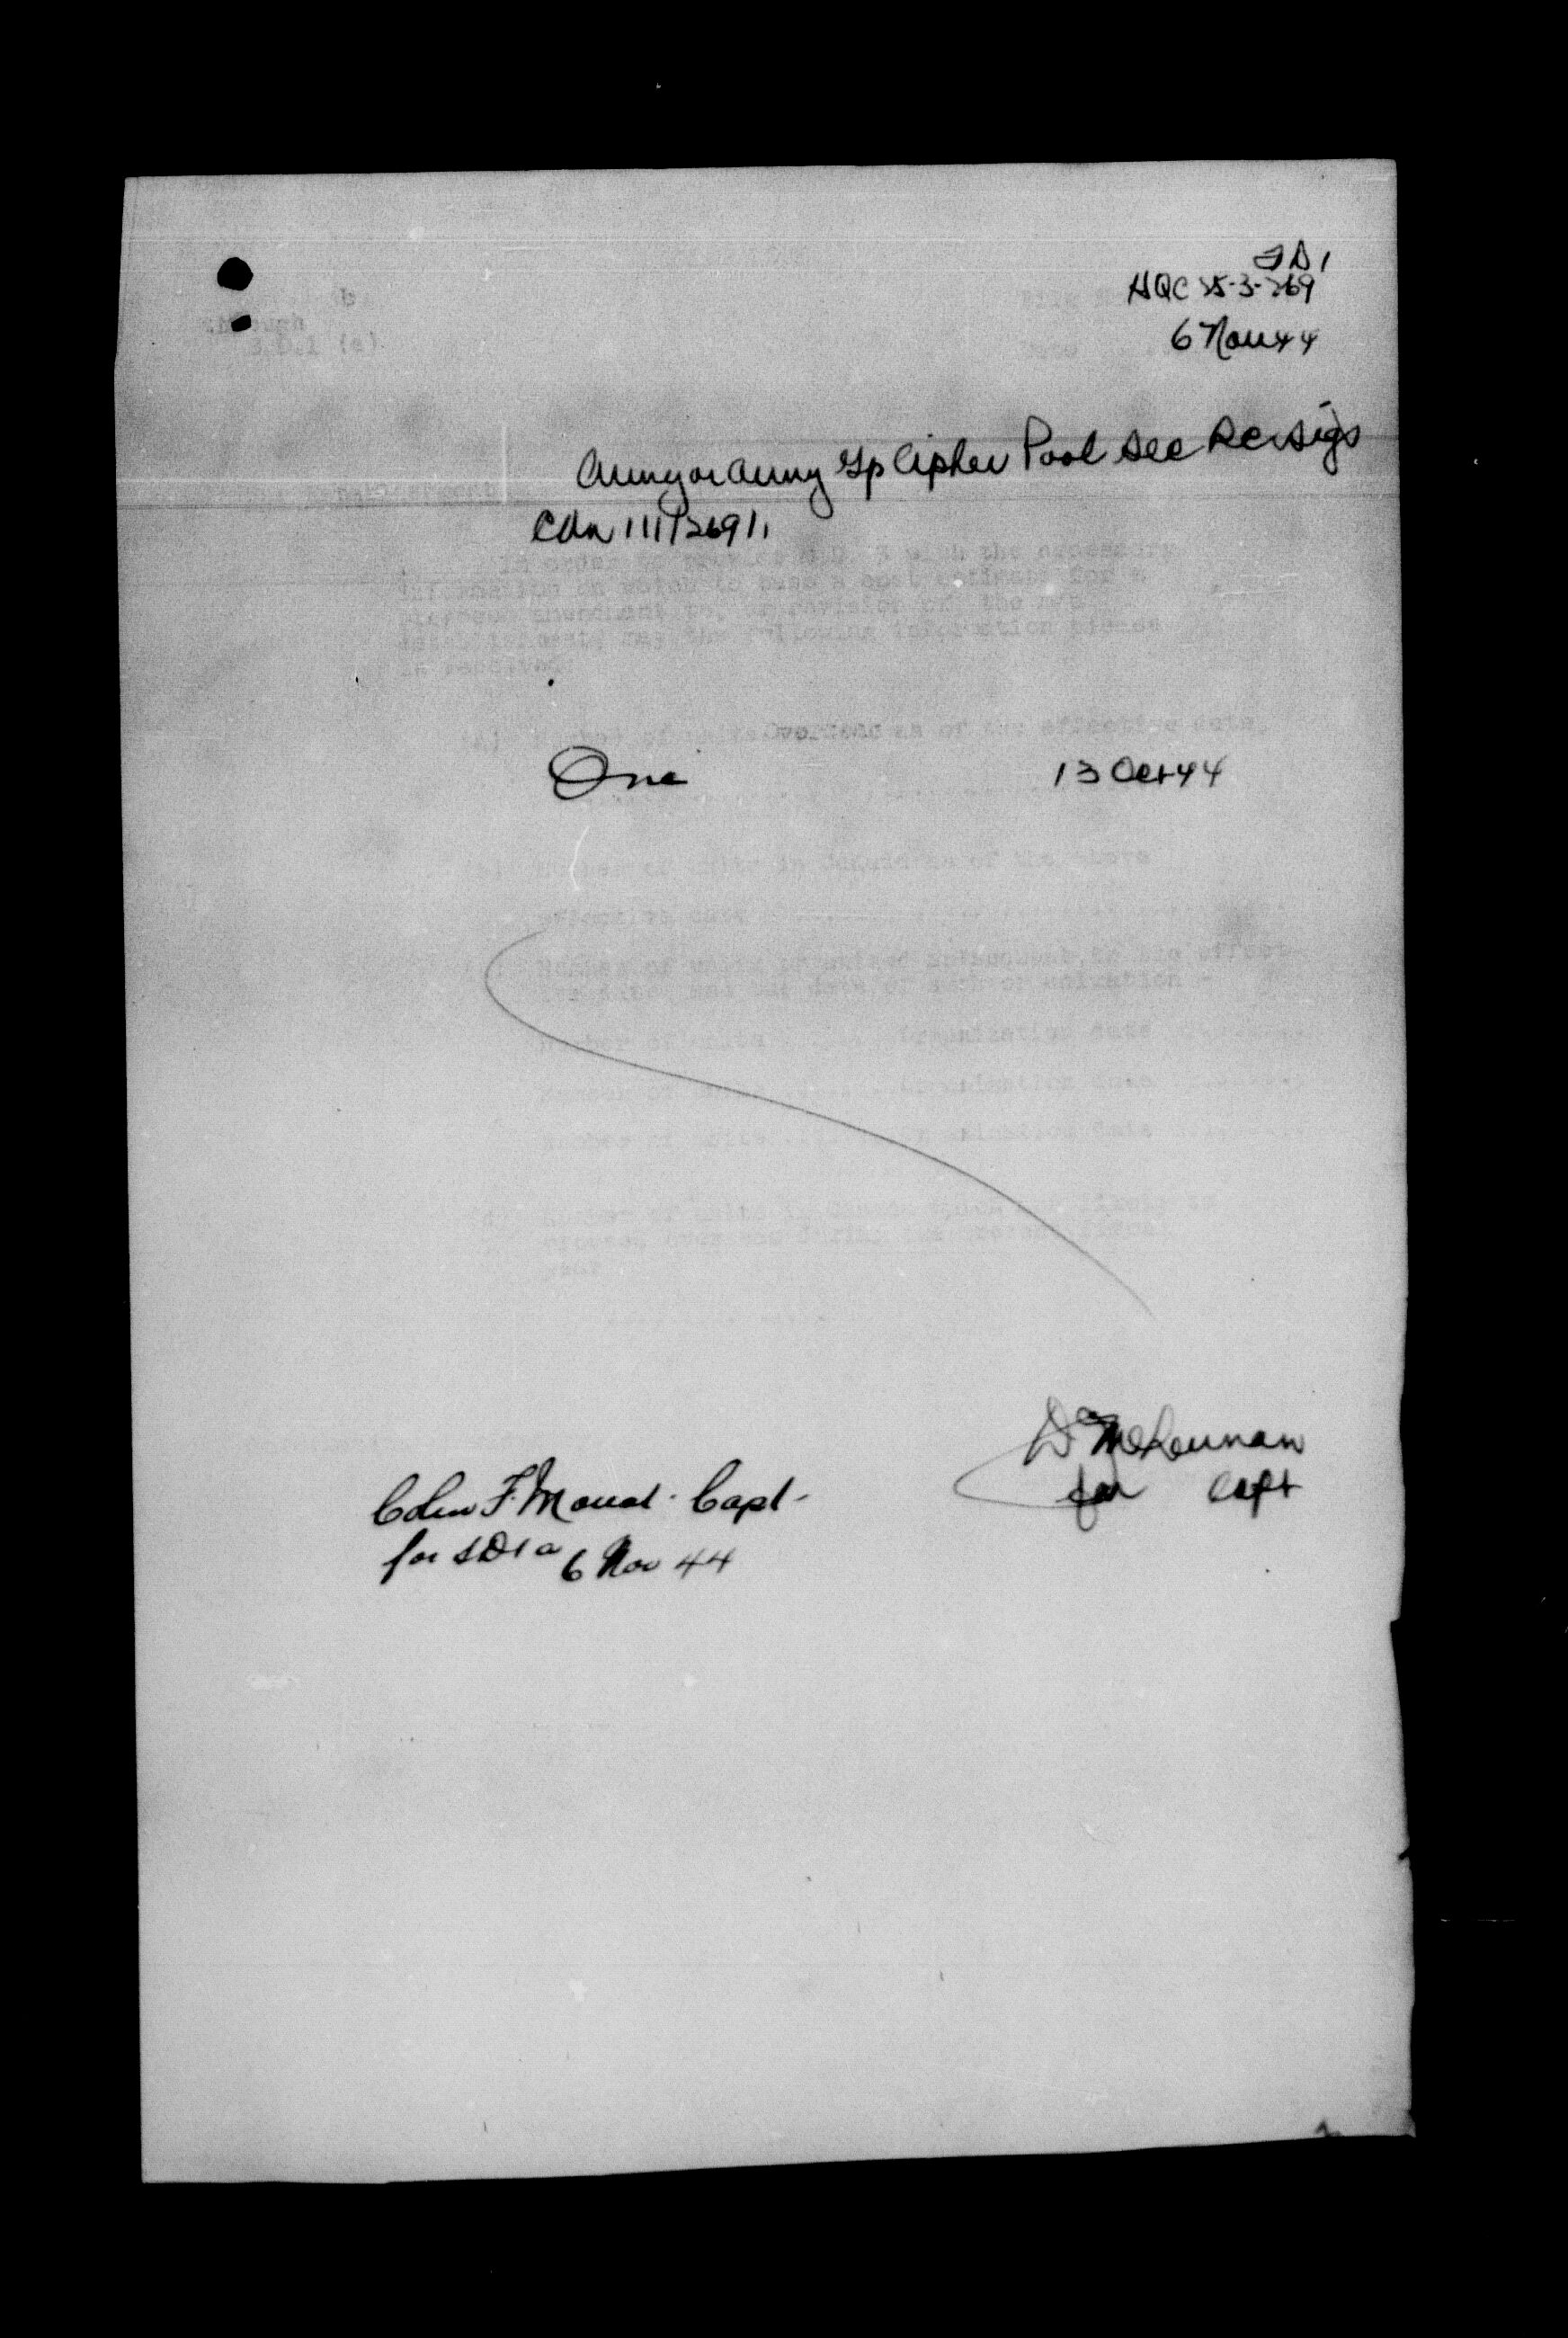 HQC 25-3-269
6 Nov 44
b
through
S.D.1 (a)
Army or Army Gp Cipher Pool Sec RC Sigs
Cdn 111/269/1
In order to provide with the necessary
information on which to base a cost estimate for a
amendment to, or revision of, the
establishment, may the following information please
be
(a) Number of units Overseas as of the effective date,
One 13 Oct 44
Number of units in Canada as of the above
effective date
Number of units organized subsequent to effect-
ive date, and the date of such organization -
Number of units ...... Organization date .........
Number of units ...... Organization date .........
Number of units ...... Organization date .........
(d) Number of units in Canada which likely to
proceed overseas during the present fiscal
year
for Capt
F. Capt.
for SD1a 6 Nov 44